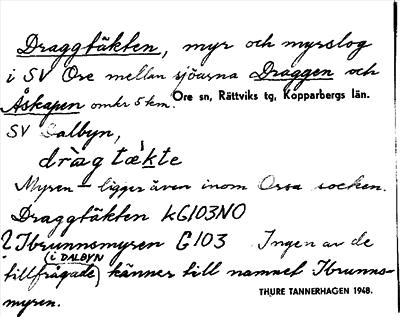 Draggtäkten, myr och myrslog
i SV Ore mellan sjöarna Draggen och
Åskapen omkr 5 km. Ore sn, Rättviks tg, Kopparbergs län.
SV Dalbyn,
dràgtæ̀kte
Myren – ligger även inom Orsa socken.
Draggtäkten kG103NO
? Ibrunnsmyren G103 Ingen av de
(i DALBYN)
tillfrågade känner till namnet Ibrunns-
myren.
THURE TANNERHAGEN 1948.